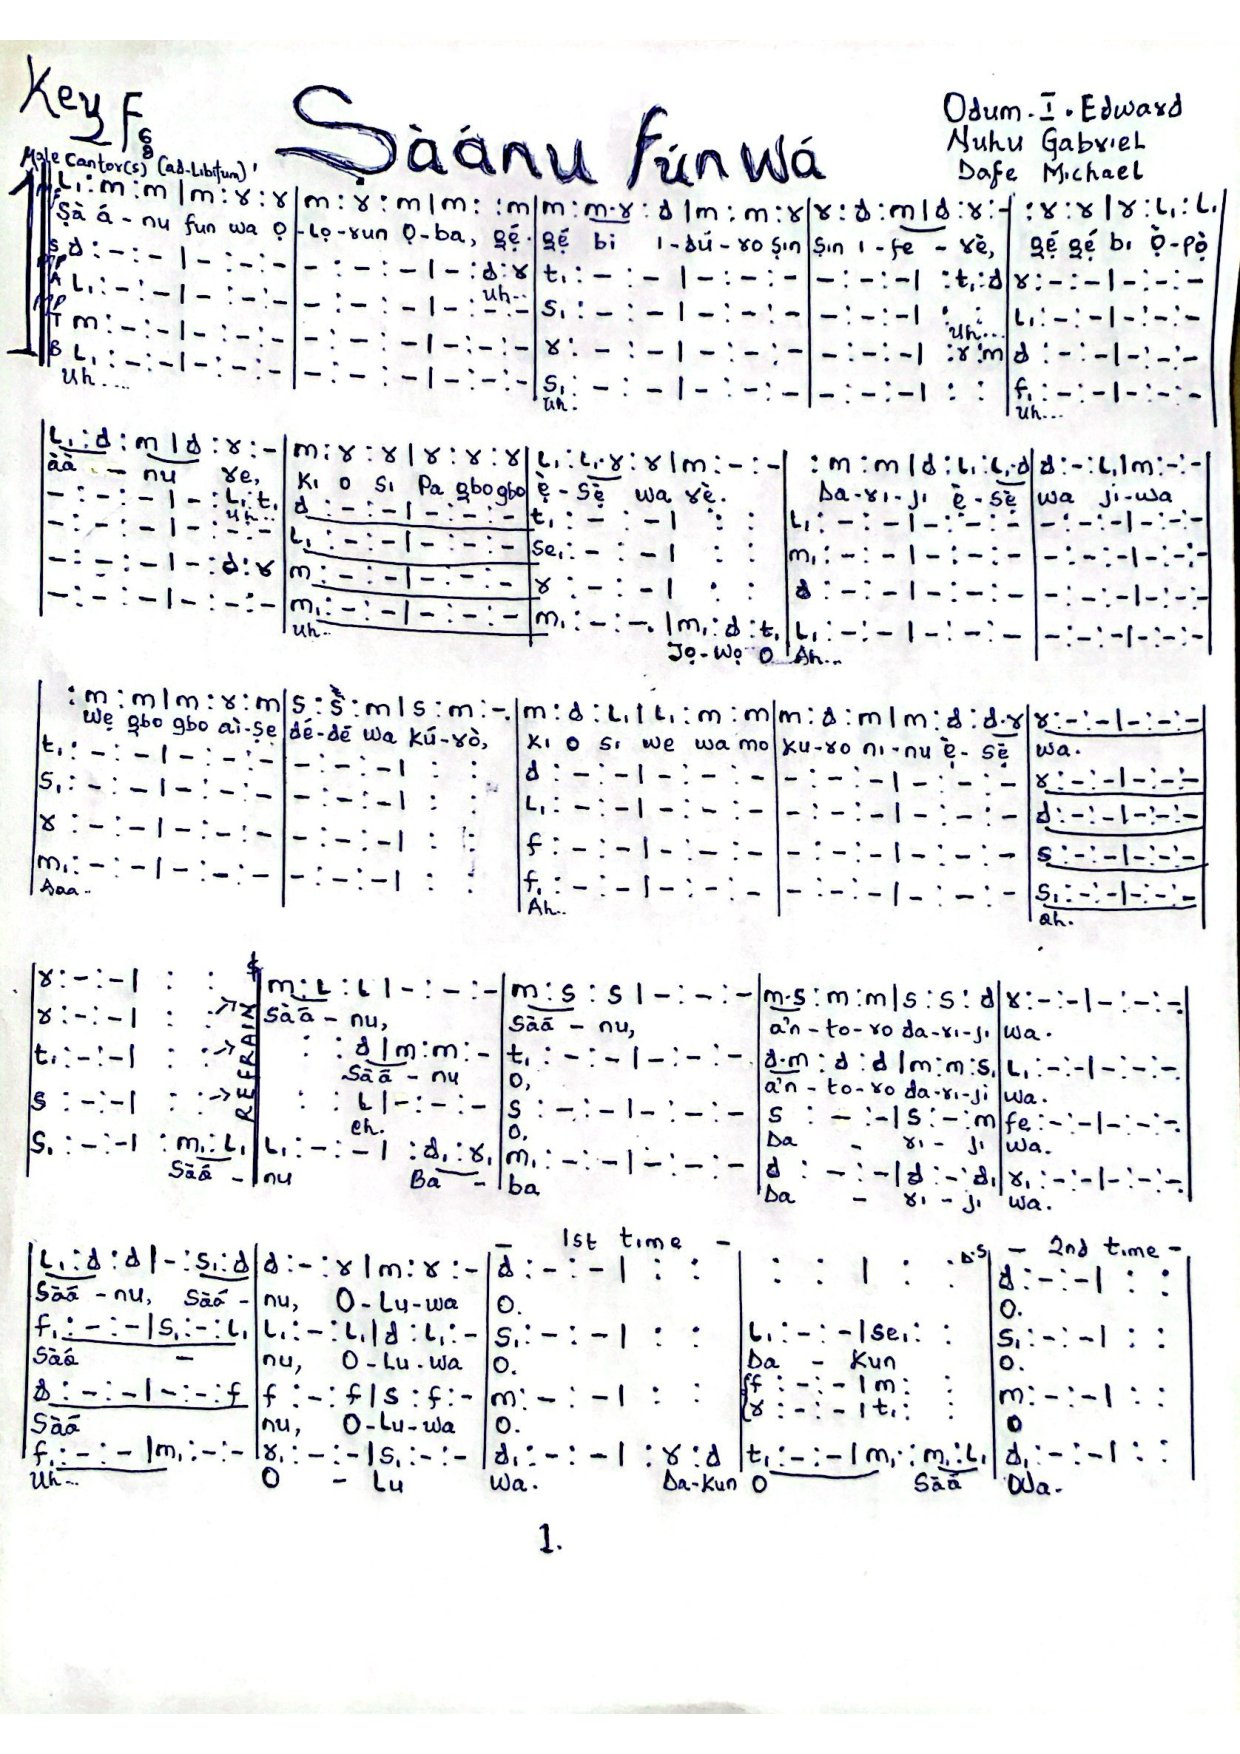 Key F 6/8
Ṣàánu Fún Wá
Odum . I . Edward
Nuhu Gabriel
Dafe Michael
Male Cantor(s) (ad-Libitum)
L₁ : m : m | m : r : r | m : r : m | m : : m | m : m.r : d | m : m : r | r : d : m | d : r : - | : r : r | r : L₁ : L₁
Ṣà á - nu fun wa Ọ -Lọ-run Ọ-ba, gẹ́ - gẹ́ bi i-dú-ro ṣin ṣin i-fe-rẹ̀, gẹ́ gẹ́ bi Ọ̀-pọ̀
S d : - : - | - : - : - | - : - : - | - : d : r | t₁ : - : - | - : - : - | - : - : - | : t₁ : d | r : - : - | - : - : -
Uh..
A L₁ : - : - | - : - : - | - : - : - | - : - : - | s₁ : - : - | - : - : - | - : - : - | : : | L₁ : - : - | - : - : -
Uh...
T m : - : - | - : - : - | - : - : - | - : - : - | r : - : - | - : - : - | - : - : - | : r : m | d : - : - | - : - : -
B L₁ : - : - | - : - : - | - : - : - | - : - : - | s₁ : - : - | - : - : - | - : - : - | : : | f₁ : - : - | - : - : -
Uh.... Uh. Uh...
L₁ : d : m | d : r : - | m : r : r | r : r : r | L₁ : L₁.r : r | m : - : - | : m : m | d : L₁ : L₁.d | d : - : L₁ | m : - : -
àá - nu re, Ki o si Pa gbo gbo ẹ̀-sẹ̀ wa rẹ̀. Da-ri-ji ẹ̀-sẹ̀ wa ji-wa
- : - : - | - : L₁ : t₁ | d : - : - | - : - : - | t₁ : - : - | : : | L₁ : - : - | - : - : - | - : - : - | - : - : -
Uh...
- : - : - | - : - : - | L₁ : - : - | - : - : - | se₁ : - : - | : : | m₁ : - : - | - : - : - | - : - : - | - : - : -
- : - : - | - : d : r | m : - : - | - : - : - | r : - : - | : : | d : - : - | - : - : - | - : - : - | - : - : -
- : - : - | - : - : - | m₁ : - : - | - : - : - | m₁ : - : -. | m₁ : d : t₁ | L₁ : - : - | - : - : - | - : - : - | - : - : -
Uh.. Jọ-Wọ O Ah...
: m : m | m : r : m | s : s : m | s : m : -. | m : d : L₁ | L₁ : m : m | m : d : m | m : d : d.r | r : - : - | - : - : -
Wẹ gbo gbo ai-ṣẹ dé-dé wa kú-rò, Ki o si we wa mo ku-ro ni-nu ẹ̀-sẹ̀ wa.
t₁ : - : - | - : - : - | - : - : - | : : | d : - : - | - : - : - | - : - : - | - : - : - | r : - : - | - : - : -
s₁ : - : - | - : - : - | - : - : - | : : | L₁ : - : - | - : - : - | - : - : - | - : - : - | d : - : - | - : - : -
r : - : - | - : - : - | - : - : - | : : | f : - : - | - : - : - | - : - : - | - : - : - | s : - : - | - : - : -
m₁ : - : - | - : - : - | - : - : - | : : | f₁ : - : - | - : - : - | - : - : - | - : - : - | s₁ : - : - | - : - : -
Aaa.. Ah.. ah.
REFRAIN
r : - : - | : : | m : L : L | - : - : - | m : s : s | - : - : - | m.s : m : m | s : s : d | r : - : - | - : - : -.
Sàá - nu, Sàá - nu, a'n-to-ro da-ri-ji wa.
r : - : - | : : | : : d | m : m : - | t₁ : - : - | - : - : - | d.m : d : d | m : m : s₁ | L₁ : - : - | - : - : -.
Sàá - nu O, a'n-to-ro da-ri-ji wa.
t₁ : - : - | : : | : : L | - : - : - | s : - : - | - : - : - | s : - : - | s : - : m | fe : - : - | - : - : -.
eh. O. Da - ri - ji wa.
s : - : - | : :
s₁ : - : - | : m₁ : L₁ | L₁ : - : - | : d₁ : r₁ | m₁ : - : - | - : - : - | d : - : - | d : - : d₁ | r₁ : - : - | - : - : -.
Sàá - nu Ba - ba Da - ri - ji wa.
1st time - D.S - 2nd time -
L₁ : d : d | - : s₁ : d | d : - : r | m : r : - | d : - : - | : : | : : | : : | d : - : - | : :
Sàá - nu, Sàá - nu, O-Lu-wa O. O.
f₁ : - : - | s₁ : - : L₁ | L₁ : - : L₁ | d : L₁ : - | s₁ : - : - | : : | L₁ : - : - | se₁ : : | s₁ : - : - | : :
Sàá - nu, O-Lu-wa O. Da - Kun O.
d : - : - | - : - : f | f : - : f | s : f : - | m : - : - | : : | f : - : - | m : : | m : - : - | : :
r : - : - | t₁ : :
Sàá nu, O-Lu-wa O. O
f₁ : - : - | m₁ : - : - | r₁ : - : - | s₁ : - : - | d₁ : - : - | : r : d | t₁ : - : - | m₁ : m₁ : L₁ | d₁ : - : - | : :
Uh... O - Lu Wa. Da-Kun O Sàá Wa.
1.